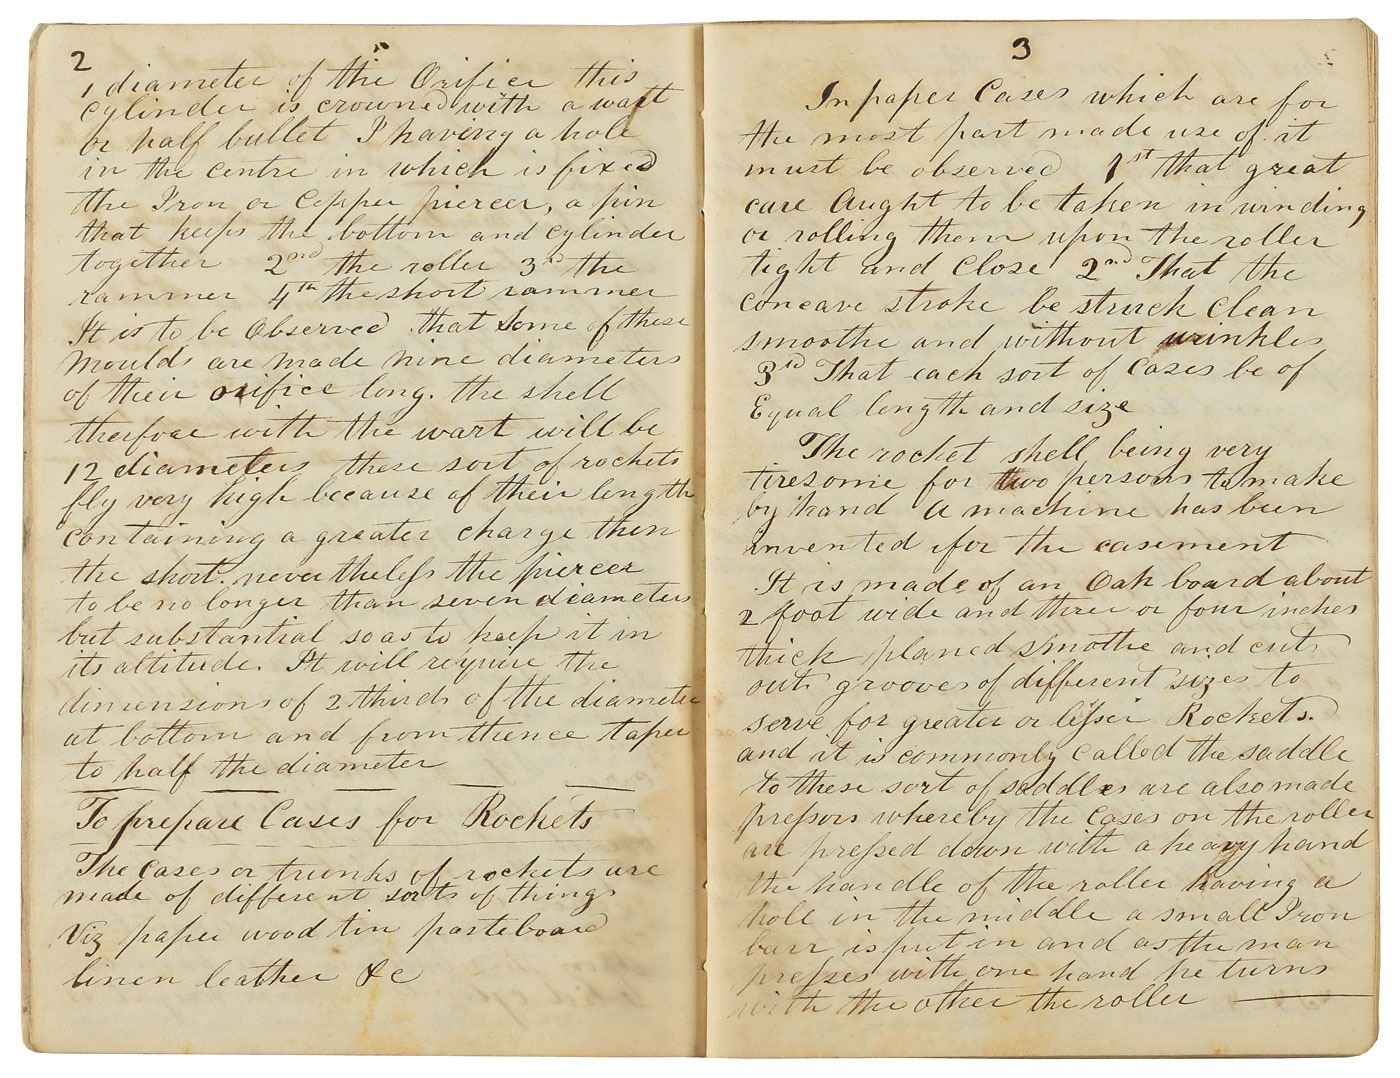 2
1 diameter of the Orifice this
cylinder is crowned with a wart
or half bullet I having a hole
in the centre in which is fixed
the Iron or Copper piercer, a pin
that keeps the bottom and cylinder
together 2nd the roller 3d the
rammer 4th the short rammer
It is to be Observed that some of these
moulds are made nine diameters
of their orifice long. the shell
therfore with the wart will be
12 diameters these sort of rockets
fly very high because of their length
containing a greater charge then
the short. nevertheless the piercer
to be no longer than seven diameters
but substantial so as to keep it in
its altitude. It will require the
dimensions of 2 thirds of the diameter
at bottom and from thence taper
to half the diameter
To prepare Cases for Rockets
The Cases or trunks of rockets are
made of different sorts of things
Viz paper wood tin pasteboard
linen leather &c
3
In paper Cases which are for
the most part made use of it
must be observed 1st that great
care Aught to be taken in winding,
or rolling them upon the roller
tight and Close 2nd That the
concave stroke be struck Clean
smoothe and without wrinkles
3rd That each sort of Cases be of
Equal length and size
The rocket shell being very
tiresome for two persons to make
by hand a machine has been
invented for the easement
It is made of an Oak board about
2 foot wide and three or four inches
thick planed smothe and cut
out grooves of different sizes to
serve for greater or lesser Rockets.
and it is commonly Called the saddle
to these sort of saddles are also made
pressors whereby the Cases on the roller
are pressed down with a heavy hand
the handle of the roller having a
hole in the middle a small Iron
barr is put in and as the man
presses with one hand he turns
with the other the roller